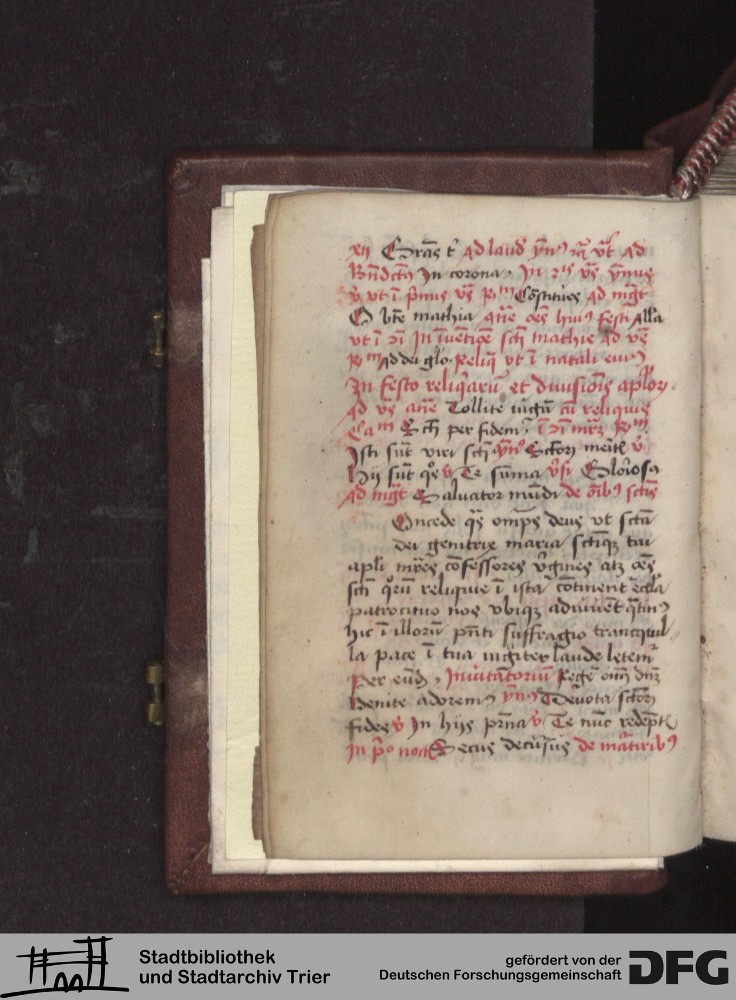 xij Gr̄as t̄ ad laud ym̄ ut Ad
Bn̄dctus In corona. In 2is vs̄ ymnus
v̄ ut ī pimis vs̄ Rm Cōstitues ad mgt̄
O bt̄e mathia añe oēs hui9 festi Alla
ut ī In īuētiōe scī mathie Ad vs̄
Rm ad dei glo. Reliq ut ī natali eius
In festo reliq̄arū et diuisiōis aplor
Ad vs añe Tollite iugū cū reliquis
Cam Scī per fidem
Isti sūt viri scī ymo Sctor mērit v̄
Hij sūt qos v̄ Te sūma vsi Gloriosa
Ad mgt̄ Saluator mūdi de oib9 sctis
Oncede qs omps deus ut sctā
dei genitrix maria sctiq tui
apli mr̄es cōfessores v̄gines atq oēs
scī qorū reliquie ī istā cōtinent eccl̄a
patrocinio nos ubiq adiuuēt qtin9
hic ī illorū pn̄ti suffragio tranquil
la pace ī tua iugiter laude letem
Per eūd. Inuitatoriū Regē oim̄ dn̄z
Venite adorem9 ym̄9 Deuota sctor
fides v̄ In hijs pr̄na v̄ Te nūc redēpt
In po noct Secus decursus de mr̄tirib9
Stadtbibliothek
und Stadtarchiv Trier
gefördert von der
Deutschen Forschungsgemeinschaft
DFG